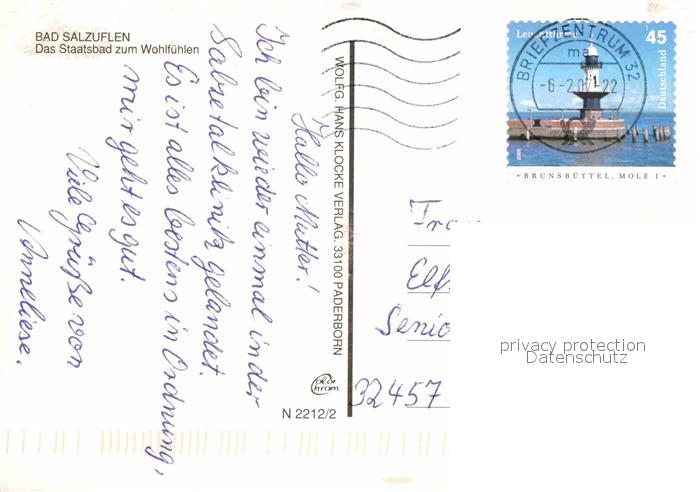 BAD SALZUFLEN
Das Staatsbad zum Wohlfühlen
Hallo Mutter!
Ich bin wieder einmal in der
Salzetalklinik gelandet.
Es ist alles bestens in Ordnung,
mir geht es gut.
Viele Grüße von
Anneliese.
WOLFG. HANS KLOCKE VERLAG. 33100 PADERBORN
N 2212/2
Leuchttürme
45
Deutschland
BRIEFZENTRUM 32
ma
-6.-2.
-22
BRUNSBÜTTEL, MOLE 1
Elf
Senio
32457
privacy protection
Datenschutz